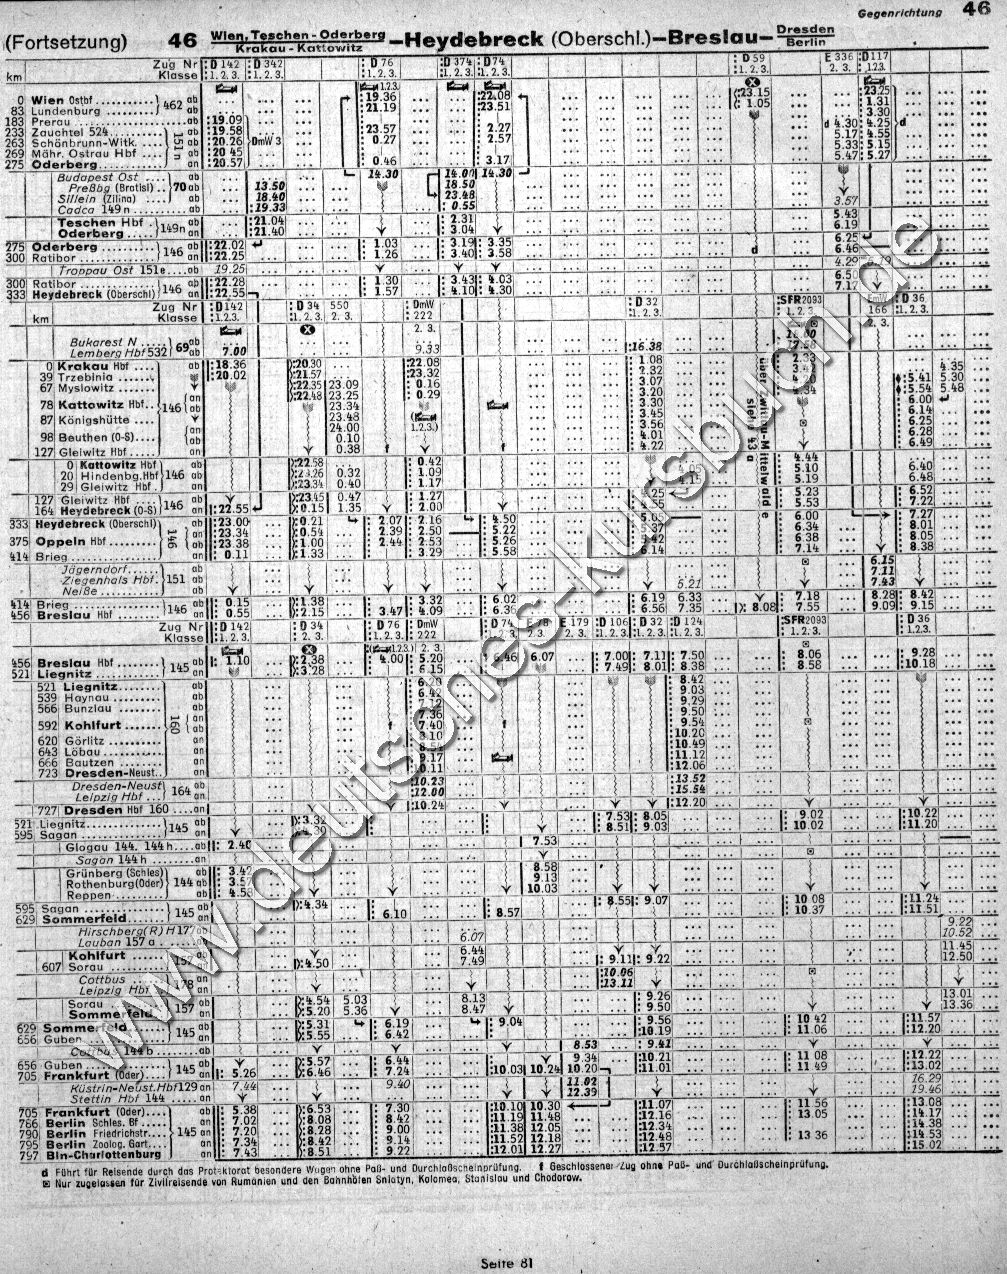 Gegenrichtung 46
(Fortsetzung) 46 Wien, Teschen - Oderberg
Krakau - Kattowitz
–Heydebreck (Oberschl.)–Breslau–
Dresden
Berlin
km Zug Nr D 142 D 342 D 76 D 374 D 74 D 59 E 336 D 117
Klasse 1. 2. 3. 1. 2. 3. 1. 2. 3. 1. 2. 3. 1. 2. 3. 1. 2. 3. 2. 3. 1.2.3.
0 Wien Ostbf 462 ab 19.36 22.08 23.15 23.25
83 Lundenburg ab 21.19 23.51 1.05 1.31
183 Prerau ab 19.09 d 4.30 4.25 d
233 Zauchtel 524 151 n ab 19.58 23.57 2.27 5.17 4.55
263 Schönbrunn-Witk. ab 20.26 DmW 3 0.27 2.57 5.33 5.15
269 Mähr. Ostrau Hbf ab 20 45 5.47 5.27
275 Oderberg an 20.57 0.46 3.17
Budapest Ost 70 ab 14.30 14.00 14.30
Preßbg (Bratisl) ab 13.50 18.50
Sillein (Zilina) ab 18.40 23.48 3.57
Cadca 149 n an 19.33 0.55
Teschen Hbf 149n ab 21.04 2.31 5.43
Oderberg an 21.40 3.04 6.19
275 Oderberg 146 ab 22.02 1.03 3.19 3.35 d 6.25
300 Ratibor an 22.25 1.26 3.40 3.58 6.46
Troppau Ost 151e ab 19.25 4.29
300 Ratibor 146 ab 22.28 1.30 3.43 4.03
333 Heydebreck (Oberschl) an 22.55 1.57 4.10 4.30 7.17
km Zug Nr D142 D 34 550 DmW 222 D 32 SFR2093 166 D 36
Klasse 1.2.3. 1. 2. 3. 2. 3. 2. 3. 1.2.3. 1. 2. 3. 2. 3. 1.2.3.
Bukarest N 69 ab
Lemberg Hbf 532 ab 7.00 9.33 16.38
0 Krakau Hbf ab 18.36 20.30 22.08 1.08 2.33 4.35
39 Trzebinia 20.02 21.57 23.32 2.07 5.41 5.30
67 Myslowitz 22.35 23.09 0.16 3.07 5.54 5.48
78 Kattowitz Hbf 146 an 22.48 23.25 0.29 3.20 6.00
ab 23.34 3.30 6.14
87 Königshütte 23.48 1.2.3.) 3.45 6.25
an 24.00 3.56 6.28
98 Beuthen (O-S) ab 0.10 4.01 6.49
127 Gleiwitz Hbf an 0.38 f f 4.22
über Zwittau-Mittelwalde siehe 43 a
0 Kattowitz Hbf 146 ab 22.58 0.42 4.44
20 Hindenbg.Hbf ab 23.26 0.32 1.09 4.05 5.10 6.40
29 Gleiwitz Hbf an 23.34 0.40 1.17 4.15 5.19 6.48
127 Gleiwitz Hbf 146 ab 23.45 0.47 1.27 4.25 5.23 6.52
164 Heydebreck (O-S) an 22.55 0.15 1.35 2.00 4.55 5.53 7.22
333 Heydebreck (Oberschl) 146 ab 23.00 0.21 2.07 2.16 4.50 5.05 6.00 7.27
375 Oppeln Hbf an 23.34 0.54 2.39 2.50 5.22 5.37 6.34 8.01
ab 23.38 1.00 2.44 2.53 5.26 5.42 6.38 8.05
414 Brieg an 0.11 1.33 3.29 5.58 6.14 7.14 8.38
Jägerndorf 151 ab 6.15
Ziegenhals Hbf. ab 7.11
Neiße ab 5.21 7.43
414 Brieg 146 ab 0.15 1.38 3.32 6.02 6.19 6.33 7.18 8.28 8.42
456 Breslau Hbf an 0.55 2.15 3.47 4.09 6.36 6.56 7.35 8.08 7.55 9.09 9.15
Zug Nr D 142 D 34 D 76 DmW 222 D 74 E 78 E 179 D 106 D 32 D 124 SFR2093 D 36
Klasse 1. 2. 3. 2. 3. 1. 2. 3. 1. 2. 3. 2.3. 2. 3. 1. 2. 3. 1. 2. 3. 1. 2. 3. 1. 2. 3. 1.2.3.
456 Breslau Hbf 145 ab 1.10 2.38 4.00 5.20 6.46 6.07 7.00 7.11 7.50 8.06 9.28
521 Liegnitz an 3.28 6.15 7.49 8.01 8.38 8.58 10.18
521 Liegnitz 160 ab 8.42
539 Haynau ab 9.03
566 Bunzlau ab 9.29
592 Kohlfurt an 7.36 9.50
ab f 7.40 f 9.54
620 Görlitz an 8.10 10.20
643 Löbau an 10.49
666 Bautzen an 9.17 11.12
723 Dresden-Neust. an 12.06
Dresden-Neust 164 ab 10.23 13.52
Leipzig Hbf an 12.00 15.54
727 Dresden Hbf 160 an 10.24 12.20
521 Liegnitz 145 ab 3.32 7.53 8.05 9.02 10.22
595 Sagan an 8.51 9.03 10 02 11.20
Glogau 144. 144 h ab 2.40 7.53
Sagan 144 h an
Grünberg (Schles) 144 ab 8.58
Rothenburg(Oder) ab 9.13
Reppen an 10.03
595 Sagan 145 ab 4.34 8.55 9.07 10 08 11.24
629 Sommerfeld an 6.10 8.57 10.37 11.51
Hirschberg(R)H ab 9.22
Lauban 157 a ab 6.07 10.52
Kohlfurt ab 6.44 11.45
607 Sorau an 4.50 7.49 9.11 9.22 12.50
Cottbus an 10.06
Leipzig Hbf an 13.11
Sorau 157 ab 4.54 5.03 8.13 9.26 13.01
Sommerfeld an 5.20 5.36 8.47 9.50 13.36
629 Sommerfeld 145 ab 5.31 6.19 9.04 9.56 10 42 11.57
656 Guben an 5.55 6.42 10.19 11.06 12.20
Cottbus 144 b ab 8.53 9.41
656 Guben 145 ab 5.57 6.44 9.34 10.21 11 08 12.22
705 Frankfurt (Oder) an 5.26 6.46 7.24 10.03 10.24 10.20 11.01 11 49 13.02
Küstrin-Neust.Hbf129 an 7.44 9.40 11.02 16.29
Stettin Hbf 144 an 12.39 19.46
705 Frankfurt (Oder) 145 ab 5.38 6.53 7.30 10.10 10.30 11.07 11 56 13.08
786 Berlin Schles. Bf an 7.02 8.08 8.42 11.19 11.48 12.16 13 05 14.17
790 Berlin Friedrichstr. an 7.20 8.28 9.00 11.38 12.05 12.34 14.38
795 Berlin Zoolog. Gart. an 7.34 8.42 9.14 11.52 12.18 12.48 13 36 14.53
797 Bln-Charlottenburg an 7.43 8.51 9.22 12.01 12.27 12.57 15.02
d Führt für Reisende durch das Protektorat besondere Wagen ohne Paß- und Durchlaßscheinprüfung. f Geschlossener Zug ohne Paß- und Durchlaßscheinprüfung.
Nur zugelassen für Zivilreisende von Rumänien und den Bahnhöfen Sniatyn, Kolomea, Stanislau und Chodorow.
Seite 81
www.deutsches-kursbuch.de